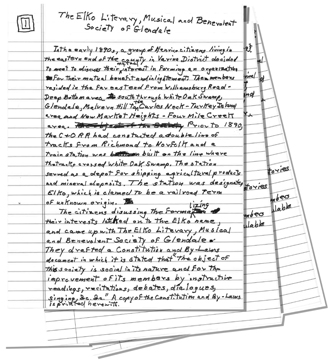 1
The Elko Literary, Musical and Benevolent
Society of Glendale
In the early 1890s, a group of Henrico citizens living in
the eastern end of the county in Varina District decided
to meet to discuss their mutual interest in forming an organization
for their mutual benefit and enlightenment. These members
resided in the far east end from Williamsburg Road -
Deep Bottom area, south through White Oak Swamp,
Glendale, Malvern Hill, the Carlos Neck - Turkey Island
area and New Market Heights - Four Mile Creek
area. Prior to 1890,
the C & O RR had constructed a double line of
tracks from Richmond to Norfolk and a
train station was built on the line where
that tracks crossed White Oak Swamp. The station
served as a depot for shipping agricultural products
and mineral deposits. The station was designated
Elko, which is claimed to be a railroad term
of unknown origin.
The citizens discussing the formalizing
their interests latched on to the Elko name
and came up with The Elko Literary, Musical
and Benevolent Society of Glendale.
They drafted a Constitution and By-Laws
document in which it is stated that "The object of
this society is social in its nature and for the
improvement of its members by instructive
readings, recitations, debates, dialogues,
singing, &c. &c." A copy of the Constitution and By-Laws
is printed herewith.